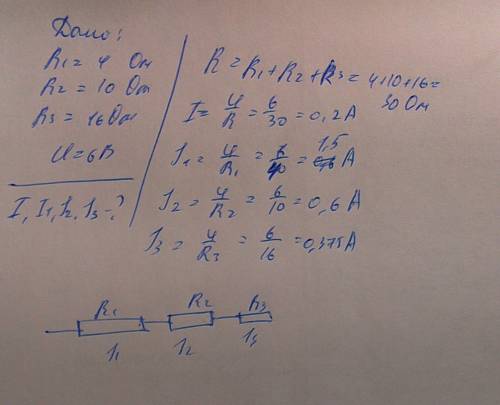 Дано:
R1 = 4 Ом
R2 = 10 Ом
R3 = 16 Ом
U = 6В
I, I1, I2, I3 - ?
R = R1 + R2 + R3 = 4+10+16 =
30 Ом
I = U/R = 6/30 = 0,2А
I1 = U/R1 = 6/4 = 1,5 А
I2 = U/R2 = 6/10 = 0,6 А
I3 = U/R3 = 6/16 = 0,375А
R1 R2 R3
I1 I2 I3